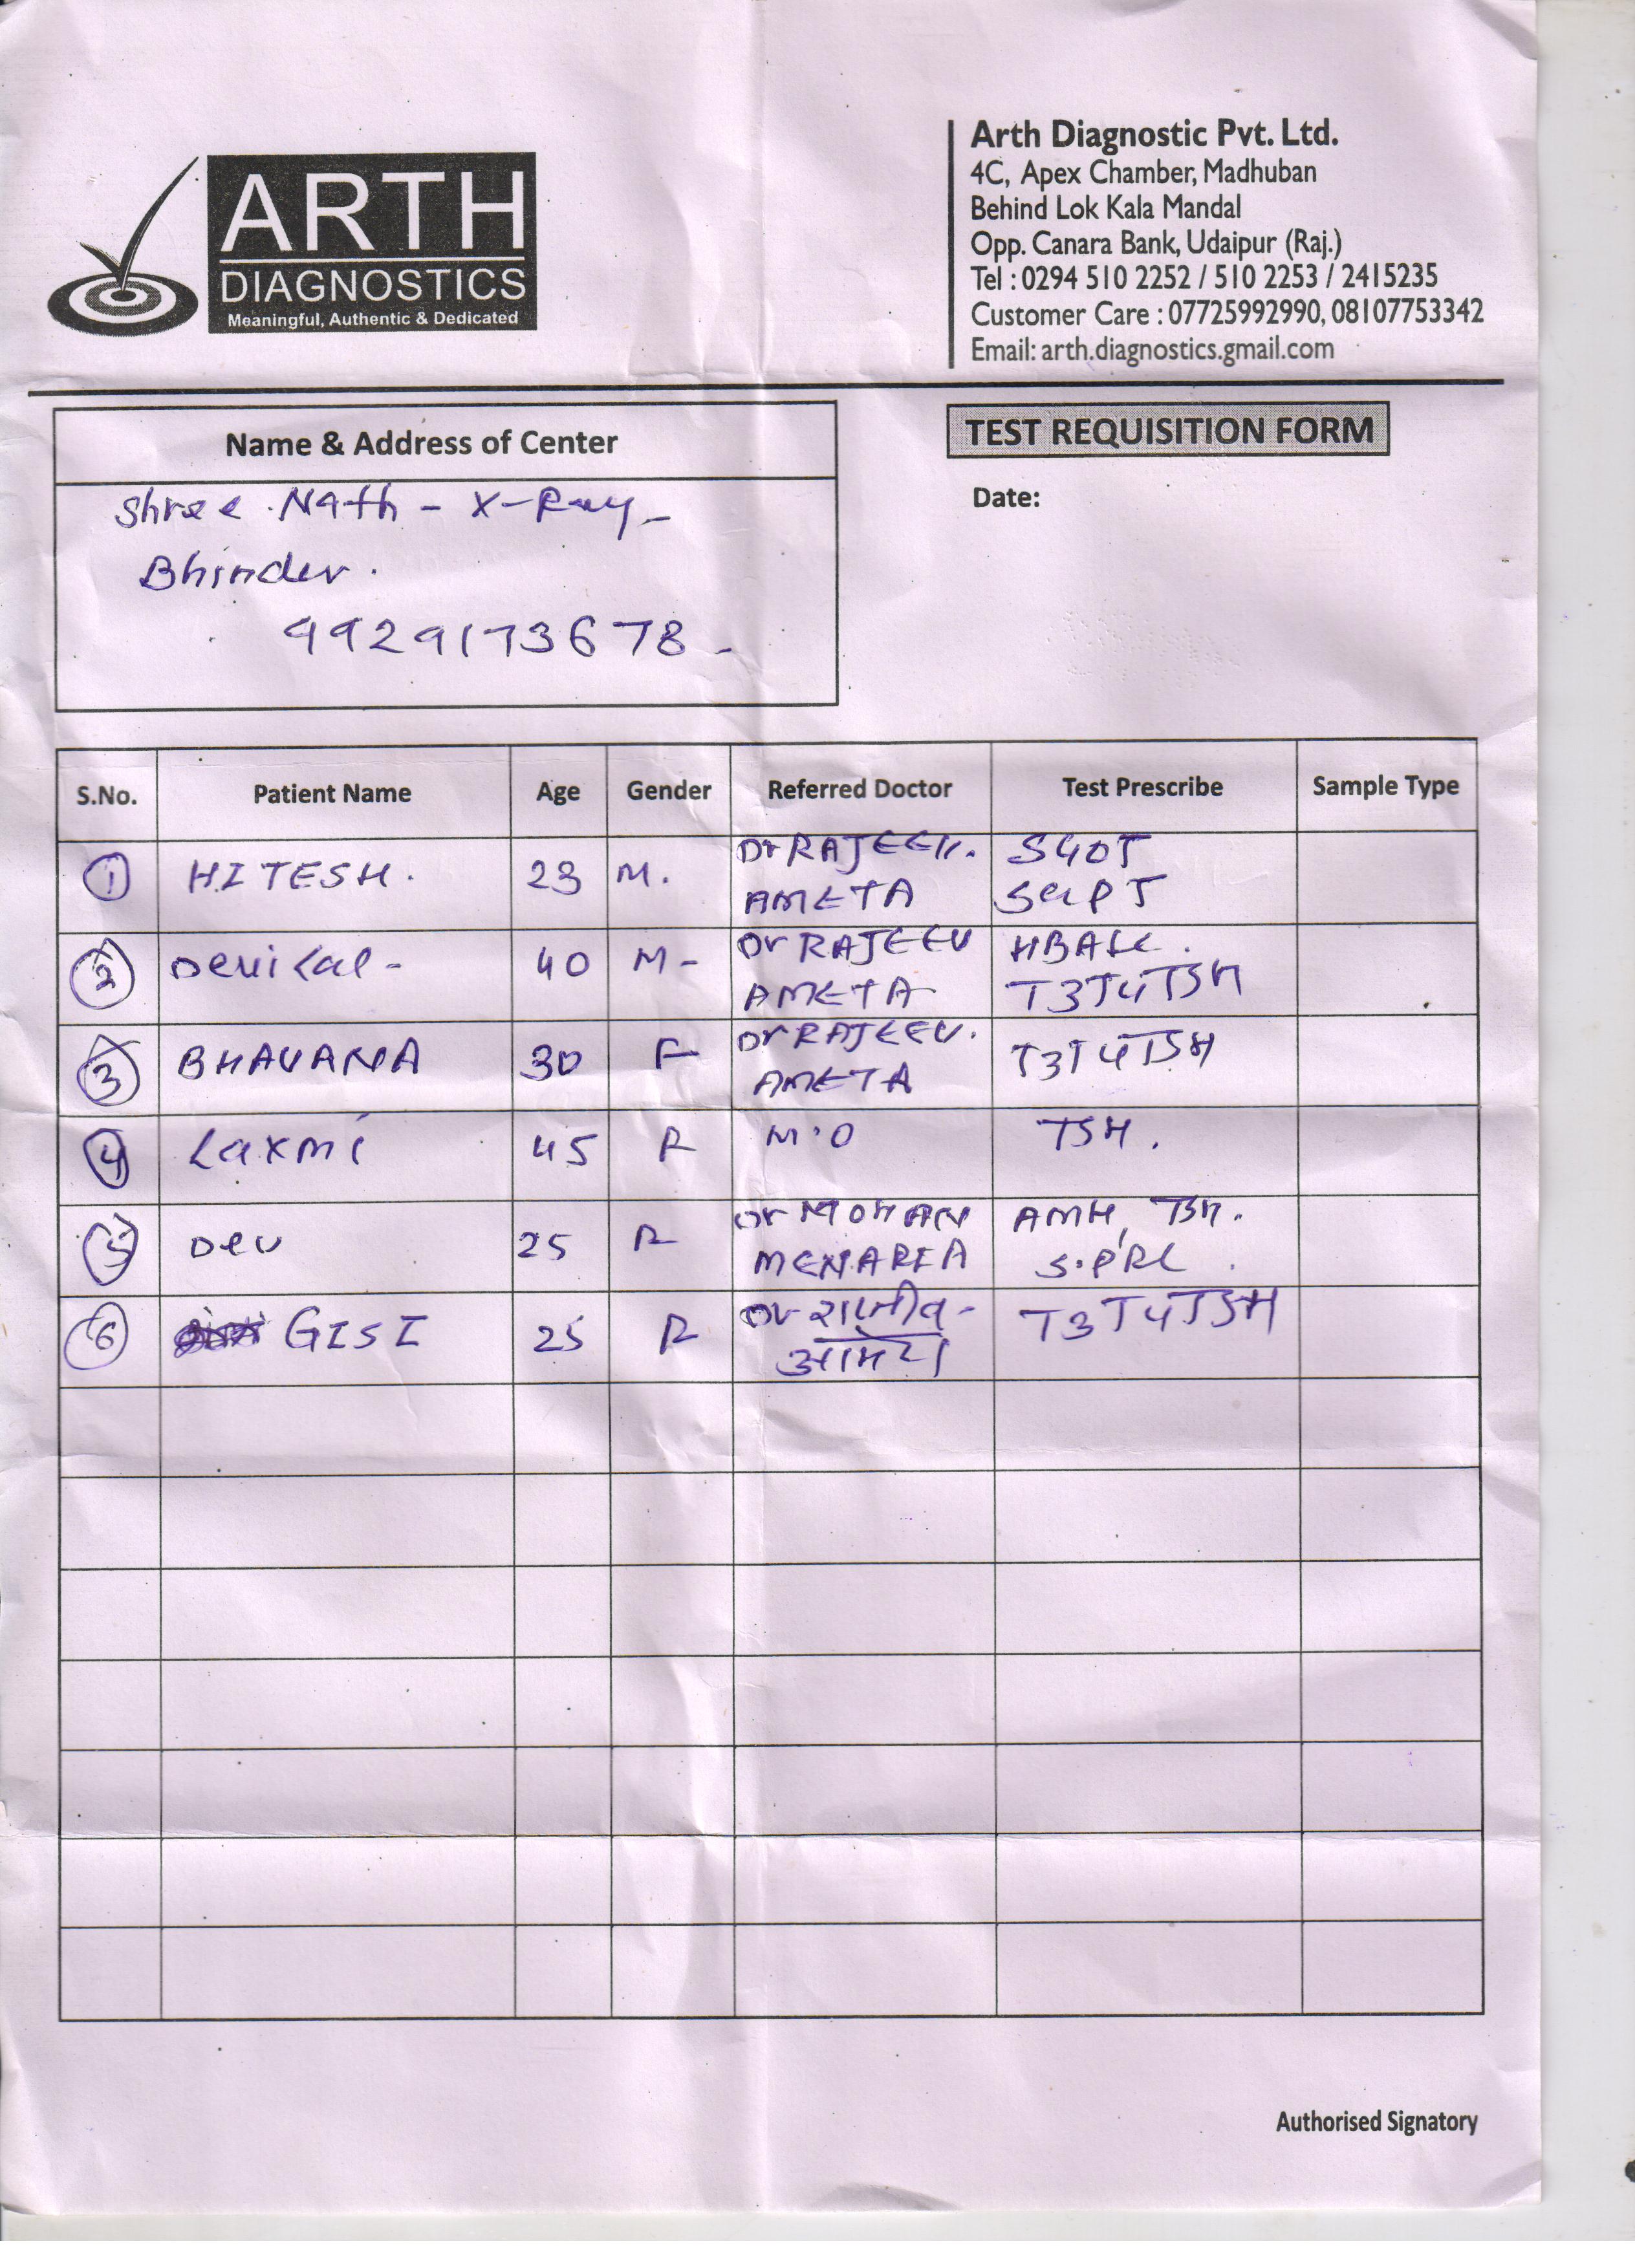 ARTH
DIAGNOSTICS
Meaningful, Authentic & Dedicated
Arth Diagnostic Pvt. Ltd.
4C, Apex Chamber, Madhuban
Behind Lok Kala Mandal
Opp. Canara Bank, Udaipur (Raj.)
Tel : 0294 510 2252 / 510 2253 / 2415235
Customer Care : 07725992990, 08107753342
Email: arth.diagnostics.gmail.com
Name & Address of Center
Shree Nath - X-Ray -
Bhinder.
9929173678 -
TEST REQUISITION FORM
Date:
S.No. Patient Name Age Gender Referred Doctor Test Prescribe Sample Type
1 HITESH. 23 M. Dr RAJEEV. AMETA SGOT SGPT
2 Devilal - 40 M - Dr RAJEEV AMETA HBA1C. T3T4TSH
3 BHAVANA 30 F Dr RAJEEV. AMETA T3T4TSH
4 Laxmi 45 F M.O TSH.
5 Dev 25 F Dr MOHAN MENARIA AMH, TSH. S.PRL.
6 GISI 25 F Dr राजीव - आमेटा T3T4TSH
Authorised Signatory